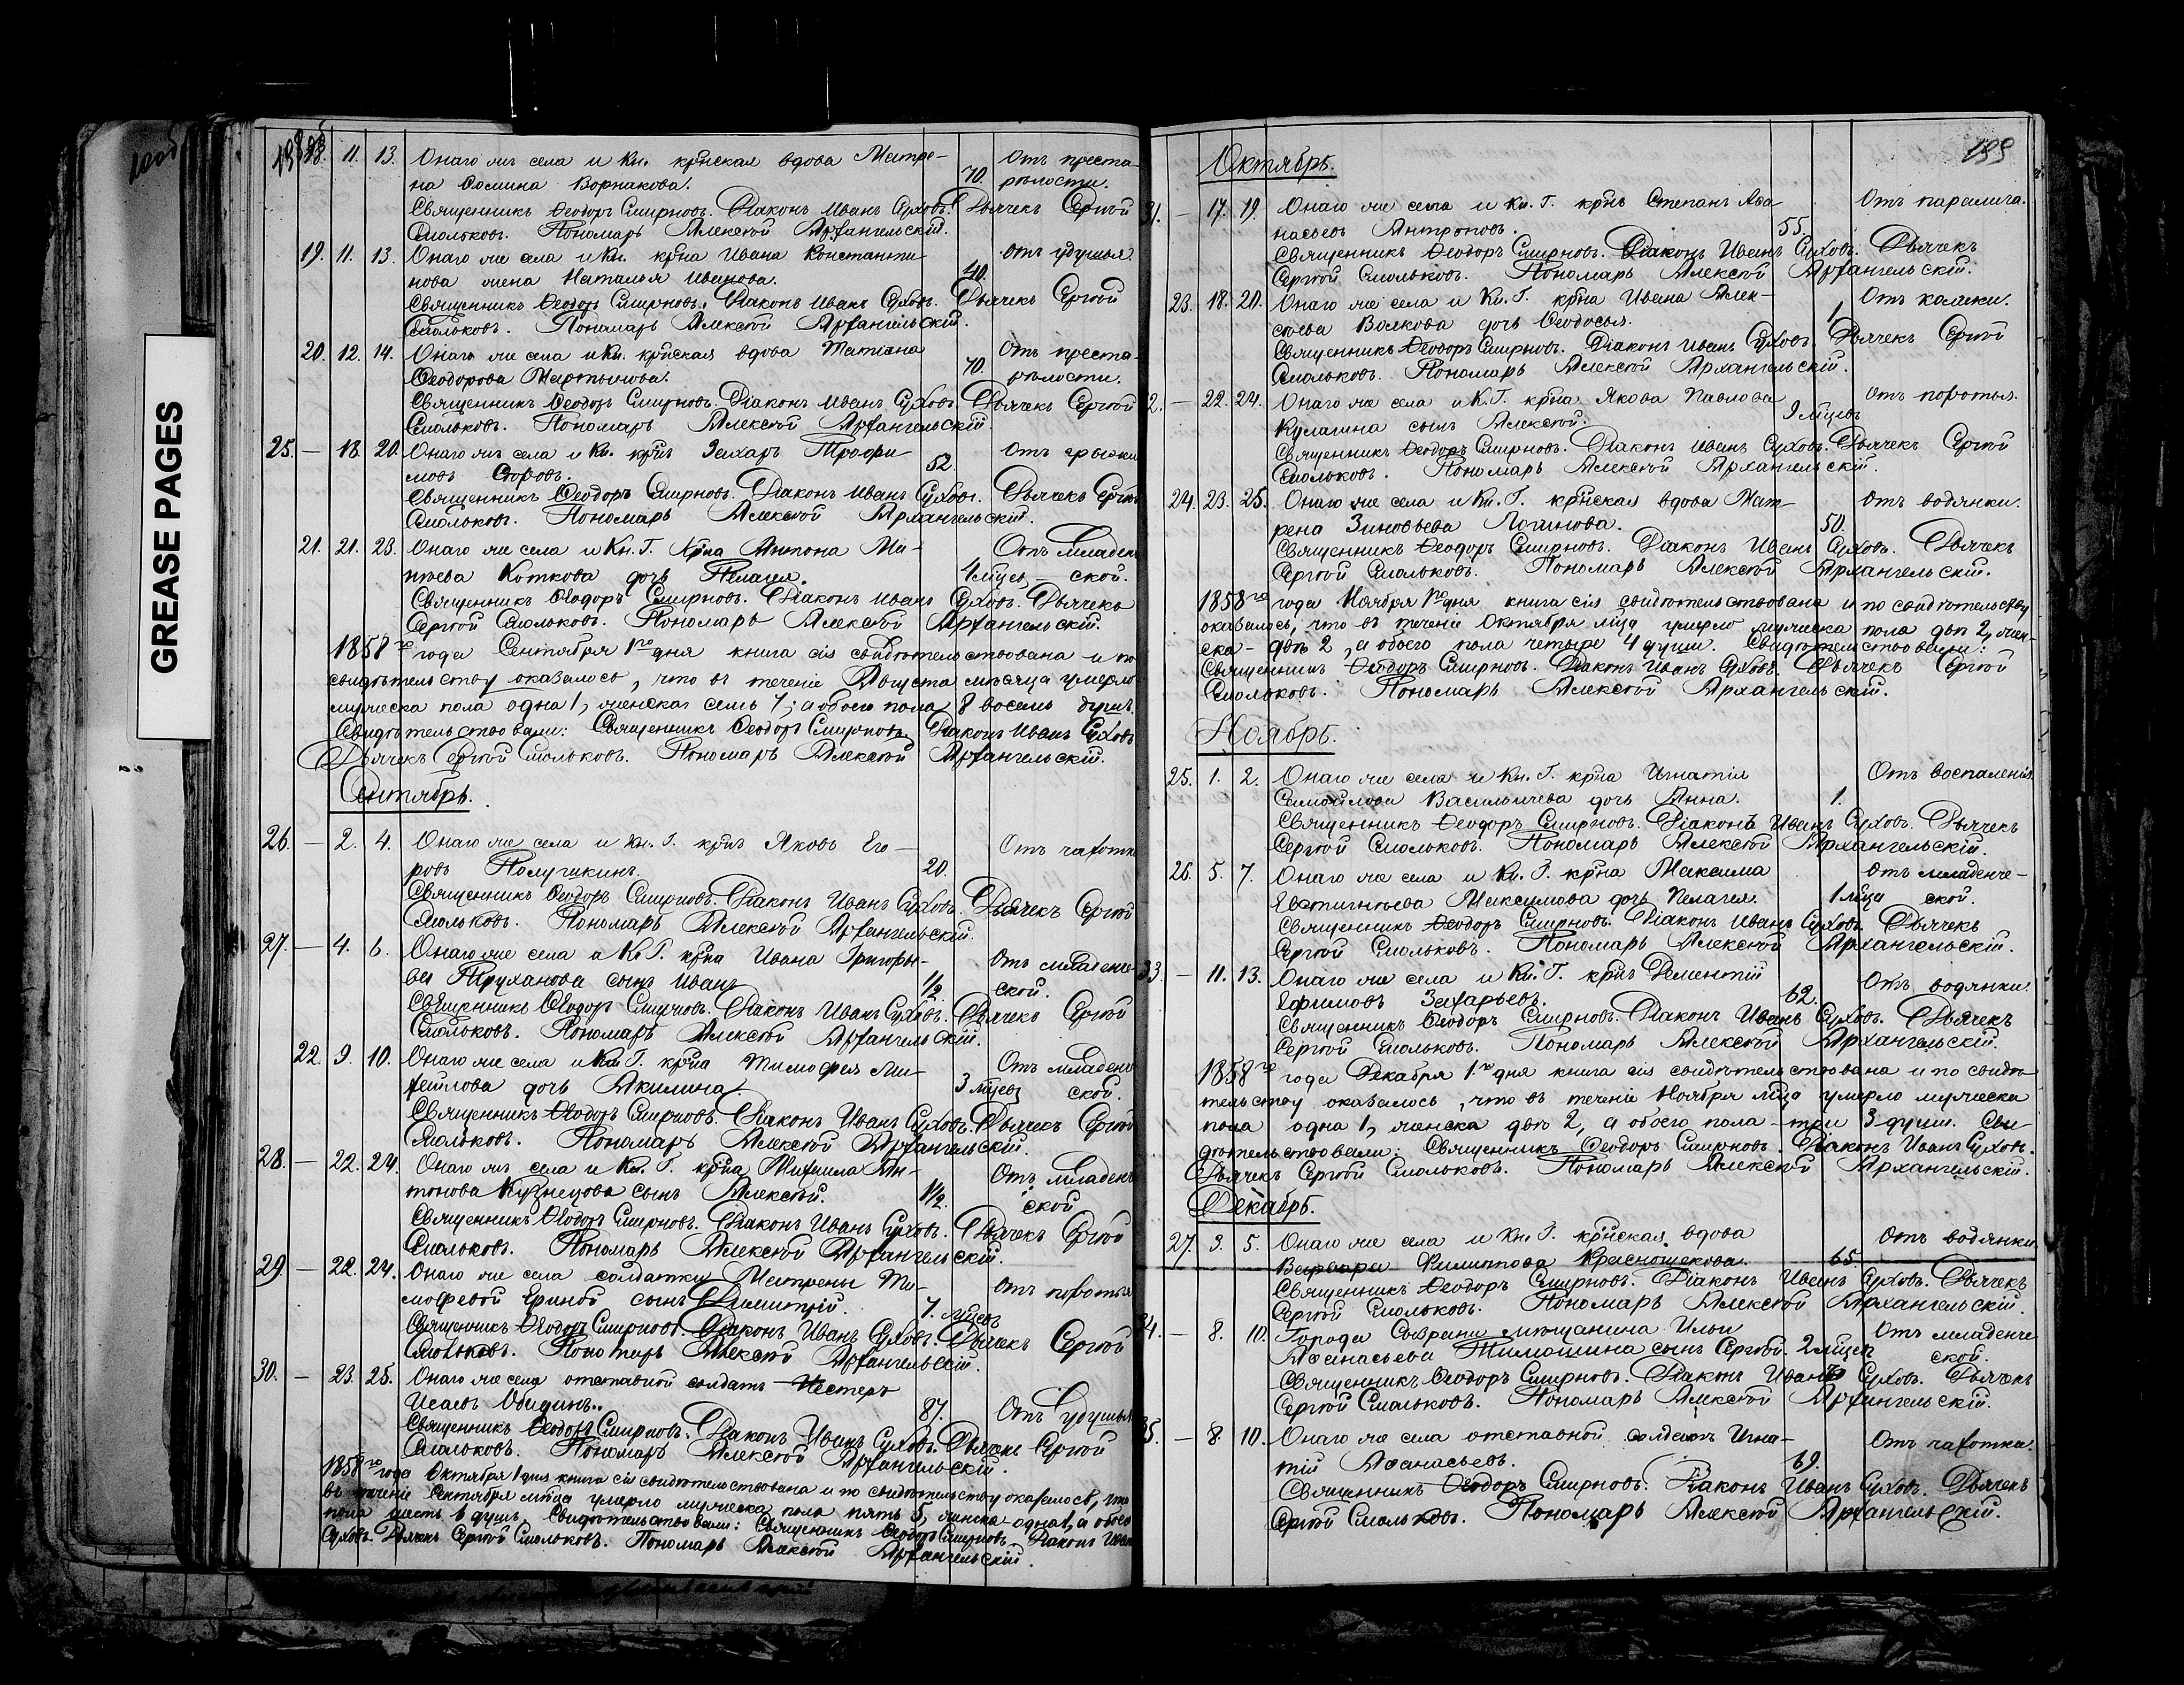 GREASE PAGES
18. 11. 13. Онаго же села и Кн. крънская вдова Матре-
на Фомина Ворнакова. 70. Отъ преста-
рѣлости.
Священникъ Ѳеодоръ Смирновъ. Діаконъ Иванъ Суховъ. Дьячекъ Сергѣй
Смольковъ. Пономарь Алексѣй Архангельскій.
19. 11. 13. Онаго же села и Кн. кръна Ивана Константи-
нова жена Наталья Иванова. 40. Отъ удушья.
Священникъ Ѳеодоръ Смирновъ. Діаконъ Иванъ Суховъ. Дьячекъ Сергѣй
Смольковъ. Пономарь Алексѣй Архангельскій.
20. 12. 14. Онаго же села и Кн. крънская вдова Татіана
Ѳеодорова Мартынова. 70. Отъ преста-
рѣлости.
Священникъ Ѳеодоръ Смирновъ. Діаконъ Иванъ Суховъ. Дьячекъ Сергѣй
Смольковъ. Пономарь Алексѣй Архангельскій.
25. — 18. 20. Онаго же села и Кн. крнъ Захаръ Трофи-
мовъ 52. Отъ грыжи
Священникъ Ѳеодоръ Смирновъ. Діаконъ Иванъ Суховъ. Дьячекъ Сергѣй
Смольковъ. Пономарь Алексѣй Архангельскій.
21. 21. 23. Онаго же села и Кн. Г. крна Антона Ма-
твѣева Коткова дочь Пелагея. 4 мцев Отъ младен
ской.
Священникъ Ѳеодоръ Смирновъ. Діаконъ Иванъ Суховъ. Дьячекъ
Сергѣй Смольковъ. Пономарь Алексѣй Архангельскій.
1858го года Сентября 1го дня книга сія свидѣтельствована и по
свидѣтельству оказалось, что въ теченіе Августа мѣсяца умерло
мужеска пола одна 1, женска семь 7; а обоего пола 8 восемь душъ.
Свидѣтельствовали: Священникъ Ѳеодоръ Смирновъ. Діаконъ Иванъ Суховъ
Дьячекъ Сергѣй Смольковъ. Пономарь Алексѣй Архангельскій.
Сентябрь.
26. — 2. 4. Онаго же села и Кн. Г. крнъ Яковъ Его-
ровъ Полушкинъ. 20. Отъ чахотки
Священникъ Ѳеодоръ Смирновъ. Діаконъ Иванъ Суховъ. Дьячекъ Сергѣй
Смольковъ. Пономарь Алексѣй Архангельскій.
27. — 4. 6. Онаго же села и Кн. Г. крна Ивана Григорье-
ва Труханова сынъ Иванъ 1/2. Отъ младенче
ской.
Священникъ Ѳеодоръ Смирновъ. Діаконъ Иванъ Суховъ. Дьячекъ Сергѣй
Смольковъ. Пономарь Алексѣй Архангельскій.
22. 9. 10. Онаго же села и Кн. Г. крна Тимофея Ми-
хейлова дочь Акилина. 3 мцевъ Отъ младенч
ской.
Священникъ Ѳеодоръ Смирновъ. Діаконъ Иванъ Суховъ. Дьячекъ Сергѣй
Смольковъ. Пономарь Алексѣй Архангельскій.
28. — 22. 24. Онаго же села и Кн. Г. крна Михаила Ан-
тонова Кузнецова сынъ Алексѣй. 1/2. Отъ младенч
ской
Священникъ Ѳеодоръ Смирновъ. Діаконъ Иванъ Суховъ. Дьячекъ Сергѣй
Смольковъ. Пономарь Алексѣй Архангельскій.
29. — 22. 24. Онаго же села солдатки Матрены Ти-
мофеевой сынъ Димитрій. 7. мцевъ Отъ поноса
Священникъ Ѳеодоръ Смирновъ. Діаконъ Иванъ Суховъ. Дьячекъ Сергѣй
Смольковъ. Пономарь Алексѣй Архангельскій.
30. — 23. 25. Онаго же села отставной солдатъ Нестеръ
Исаевъ 87. Отъ удушья
Священникъ Ѳеодоръ Смирновъ. Діаконъ Иванъ Суховъ. Дьячекъ Сергѣй
Смольковъ. Пономарь Алексѣй Архангельскій.
1858го года Октября 1 дня книга сія свидѣтельствована и по свидѣтельству оказалось, что
въ теченіе Сентября мѣсяца умерло мужеска пола пять 5, женска одна 1, а обоего
пола шесть 6 душъ. Свидѣтельствовали: Священникъ Ѳеодоръ Смирновъ Діаконъ Иванъ
Суховъ. Дьячекъ Сергѣй Смольковъ. Пономарь Алексѣй Архангельскій.
199
Октябрь.
31. — 17. 19. Онаго же села и Кн. Г. крнъ Степанъ Аѳа-
насьевъ Антроповъ. 55. Отъ паралича.
Священникъ Ѳеодоръ Смирновъ. Діаконъ Иванъ Суховъ. Дьячекъ
Сергѣй Смольковъ. Пономарь Алексѣй Архангельскій.
23. 18. 20. Онаго же села и Кн. Г. крна Ивана Алек-
сѣева Волкова дочь Ѳеодосья. 1. Отъ
Священникъ Ѳеодоръ Смирновъ. Діаконъ Иванъ Суховъ. Дьячекъ Сергѣй
Смольковъ. Пономарь Алексѣй Архангельскій.
2. — 22. 24. Онаго же села и К. Г. крна Якова Павлова
Кулагина сынъ Алексѣй. 9 мцевъ Отъ
Священникъ Ѳеодоръ Смирновъ. Діаконъ Иванъ Суховъ. Дьячекъ Сергѣй
Смольковъ. Пономарь Алексѣй Архангельскій.
24. 23. 25. Онаго же села и Кн. Г. крнская вдова Мат-
рена Зиновьева Логинова. 50. Отъ водянки.
Священникъ Ѳеодоръ Смирновъ. Діаконъ Иванъ Суховъ. Дьячекъ
Сергѣй Смольковъ. Пономарь Алексѣй Архангельскій.
1858го года Ноября 1го дня книга сія свидѣтельствована и по свидѣтельству
оказалось, что въ теченіе Октября мца умерло мужеска пола двѣ 2, жен-
ска - двѣ 2, а обоего пола четыре 4 души. Свидѣтельствовали:
Священникъ Ѳеодоръ Смирновъ. Діаконъ Иванъ Суховъ. Дьячекъ Сергѣй
Смольковъ. Пономарь Алексѣй Архангельскій.
Ноябрь.
25. 1. 2. Онаго же села и Кн. Г. крна Игнатія
Самойлова Васильичева дочь Анна. 1. Отъ воспаленія
Священникъ Ѳеодоръ Смирновъ. Діаконъ Иванъ Суховъ. Дьячекъ
Сергѣй Смольковъ. Пономарь Алексѣй Архангельскій.
26. 5. 7. Онаго же села и Кн. Г. крна Максима
Евстигнѣева Максимова дочь Пелагея. 1 мца Отъ младенче-
ской.
Священникъ Ѳеодоръ Смирновъ. Діаконъ Иванъ Суховъ. Дьячекъ
Сергѣй Смольковъ. Пономарь Алексѣй Архангельскій.
33. — 11. 13. Онаго же села и Кн. Г. крнъ Дементій
Ефимовъ Захарьевъ. 62. Отъ водянки.
Священникъ Ѳеодоръ Смирновъ. Діаконъ Иванъ Суховъ. Дьячекъ
Сергѣй Смольковъ. Пономарь Алексѣй Архангельскій.
1858го года Декабря 1го дня книга сія свидѣтельствована и по свидѣ-
тельству оказалось, что въ теченіе Ноября мца умерло мужеска
пола одна 1, женска двѣ 2, а обоего пола - три 3 души. Сви-
дѣтельствовали: Священникъ Ѳеодоръ Смирновъ. Діаконъ Иванъ Суховъ.
Дьячекъ Сергѣй Смольковъ. Пономарь Алексѣй Архангельскій.
Декабрь.
27. 3. 5. Онаго же села и Кн. Г. крнская вдова
Варвара Филипова Краснощекова. 65. Отъ водянки
Священникъ Ѳеодоръ Смирновъ. Діаконъ Иванъ Суховъ. Дьячекъ
Сергѣй Смольковъ. Пономарь Алексѣй Архангельскій.
34. — 8. 10. Города Сызрани мѣщанина Ильи
Аѳанасьева Тимошина сынъ Сергѣй. 2 мцев Отъ младенче
ской.
Священникъ Ѳеодоръ Смирновъ. Діаконъ Иванъ Суховъ. Дьячекъ
Сергѣй Смольковъ. Пономарь Алексѣй Архангельскій.
35. — 8. 10. Онаго же села отставной солдатъ Игна-
тій Аѳанасьевъ. 69. Отъ чахотки.
Священникъ Ѳеодоръ Смирновъ. Діаконъ Иванъ Суховъ. Дьячекъ
Сергѣй Смольковъ. Пономарь Алексѣй Архангельскій.